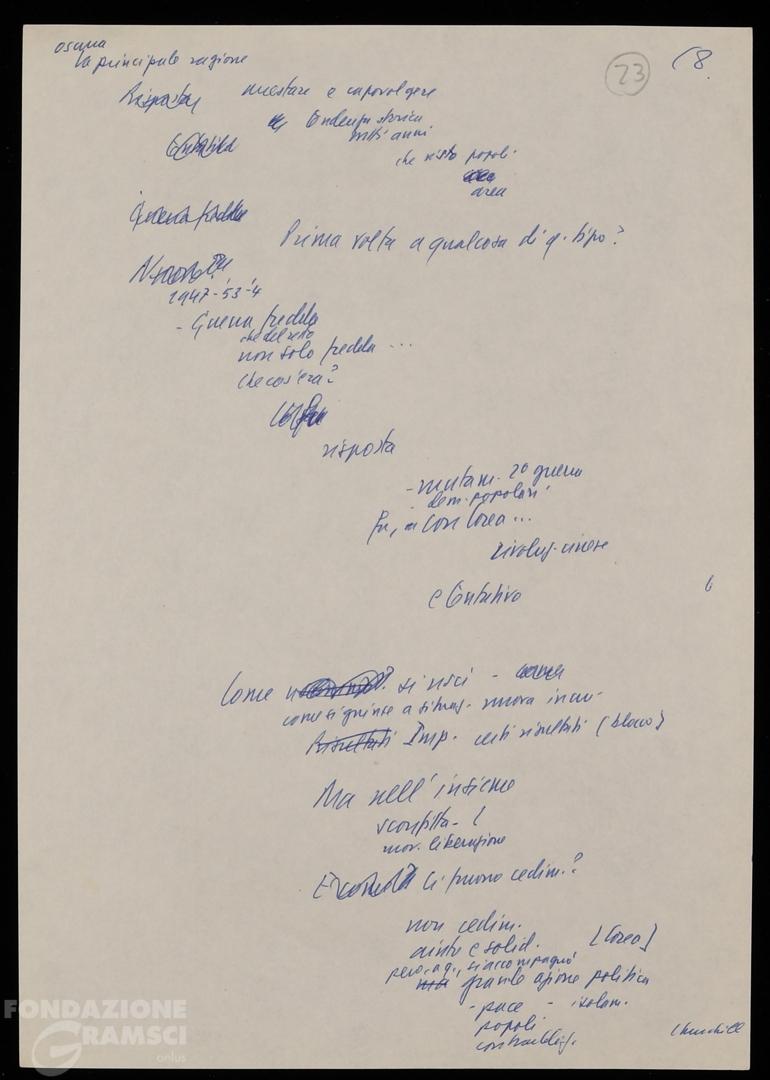 oscura
la principale ragione
23
8.
Risposta
arrestare e capovolgere
tendenza storica
molti anni
che visto popoli
area
Guerra fredda
Prima volta a qualcosa di q. tipo?
1947-53-4
- Guerra fredda
che del resto
non solo fredda ...
che cos'era?
risposta
- mutam. 2a guerra
dem. popolari
fu, in Corea ...
rivoluz. cinese
e tentativo
Come si uscì -
come si giunse a situaz. nuova
Risultati Imp. certi risultati (blocco)
Ma nell'insieme
sconfitta - (
mov. liberazione
E ci furono cedim.?
non cedim.
aiuto e solid. [Corea]
però, si accompagnò
ma grande azione politica
- pace - isolam.
popoli
contraddiz.
Churchill
FONDAZIONE
GRAMSCI
onlus